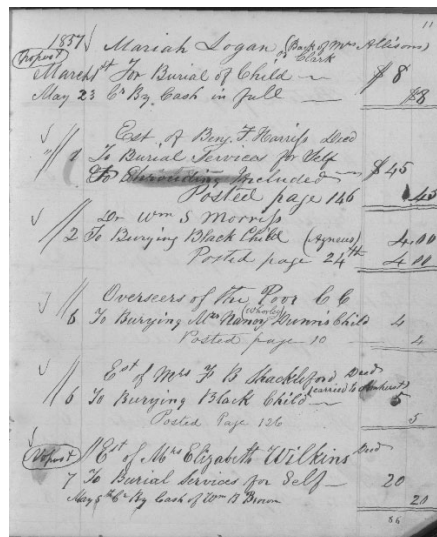 11
1857 Mariah Logan (Back of Mrs Allisons)
or Clark
Propost
March 1st For Burial of Child — $8
May 23 Cr By Cash in full — $8
Est. of Benj. F. Harriss Decd
" 1 To Burial Services for Self
To Shrouding Included — $45
Posted page 146 45
Dr Wm S Morriss
" 2 To Burying Black Child (Agness) 4.00
Posted page 24th 4 00
Overseers of the Poor C C
(Whorley)
" 6 To Burying Mrs Nancy Dunn's Child 4
Posted page 10 — 4
Est of Mrs F B Shackleford Decd
(carried to Amherst)
" 6 To Burying Black Child — 5
Posted Page 126 5
" Est of Mrs Elizabeth Wilkins Decd
7 To Burial Services for Self — 20
May 5th Cr By Cash of Wm B Brown 20
86